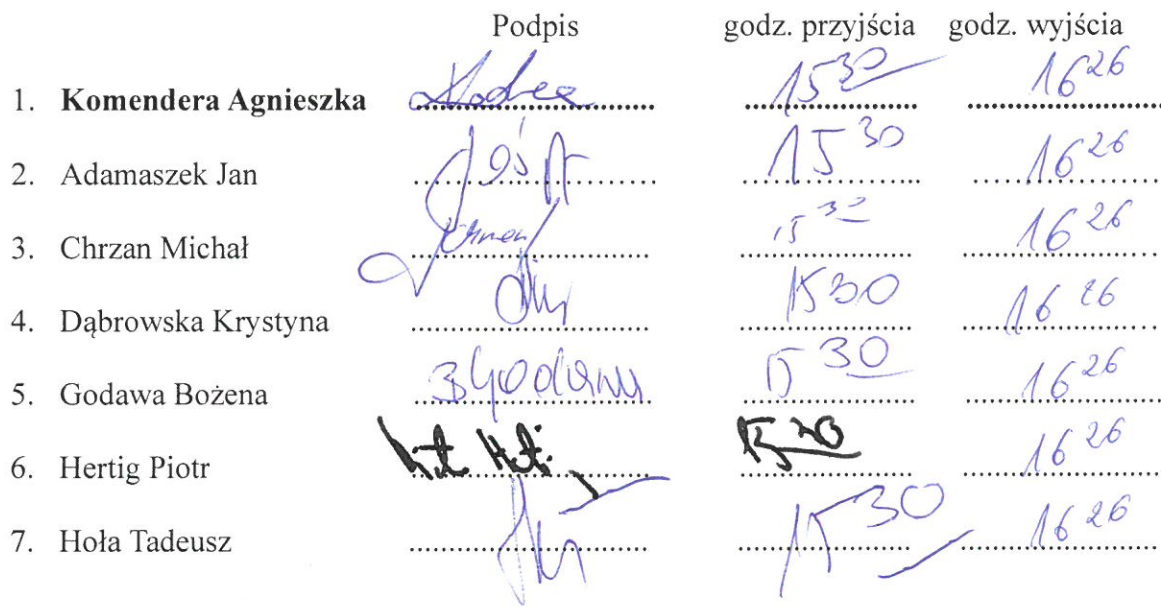 Podpis godz. przyjścia godz. wyjścia
1. Komendera Agnieszka 15 30 16 26
2. Adamaszek Jan 15 30 16 26
3. Chrzan Michał 15 30 16 26
4. Dąbrowska Krystyna 15 30 16 26
5. Godawa Bożena 15 30 16 26
6. Hertig Piotr 15 30 16 26
7. Hoła Tadeusz 15 30 16 26